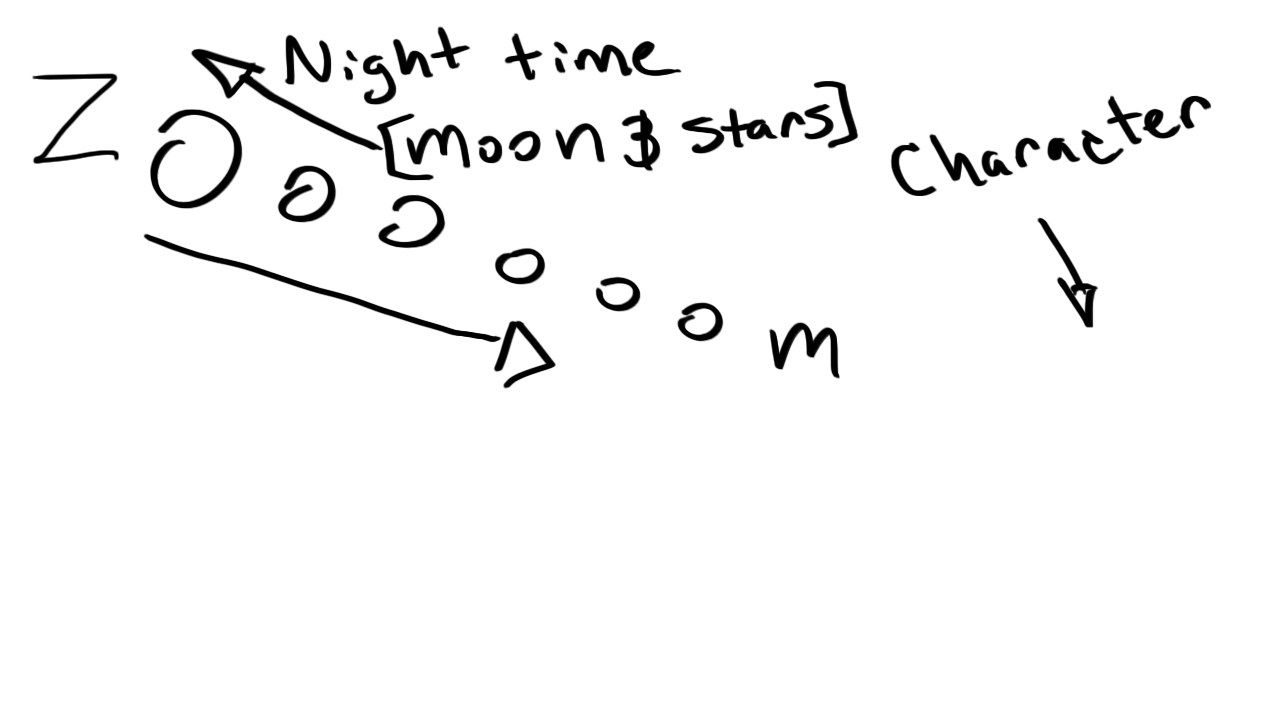 Night time
[moon & stars]
Character
ZOooooom